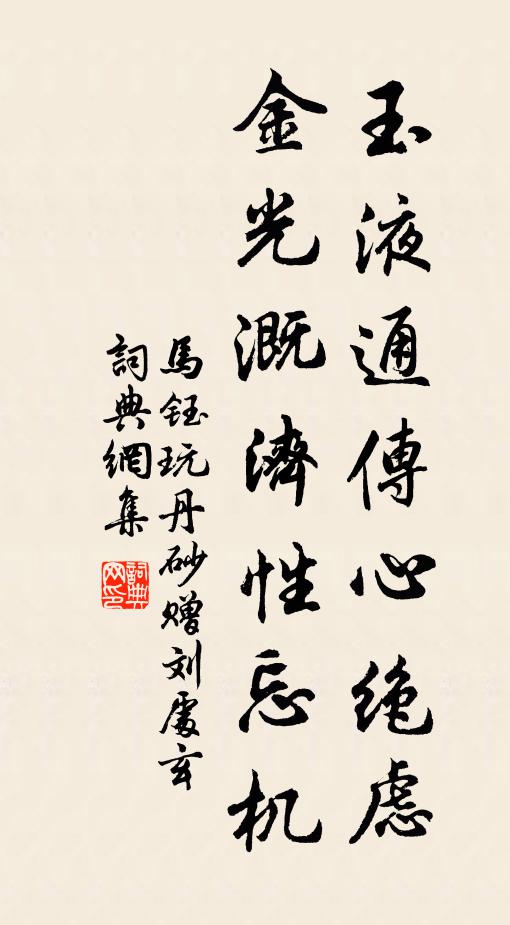 玉液通傳心绝慮
金光溉濟性忘机
馬鈺玩丹砂赠刘處玄
詞典網集
詞典网印